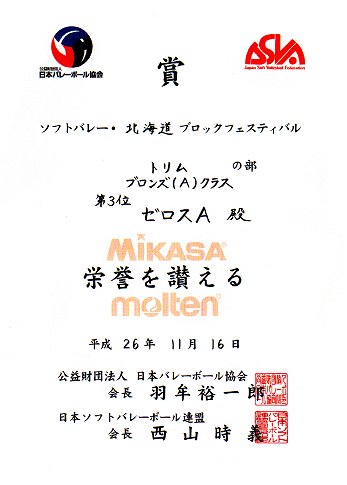 公益財団法人
日本バレーボール協会
JSVA
Japan Soft Volleyball Federation
賞
ソフトバレー・北海道ブロックフェスティバル
トリム の部
ブロンズ(A)クラス
第3位
ゼロスA 殿
MIKASA
栄誉を讃える
molten
平成 26年 11月 16日
公益財団法人 日本バレーボール協会
会長 羽牟裕一郎
日本ソフトバレーボール連盟
会長 西山時義